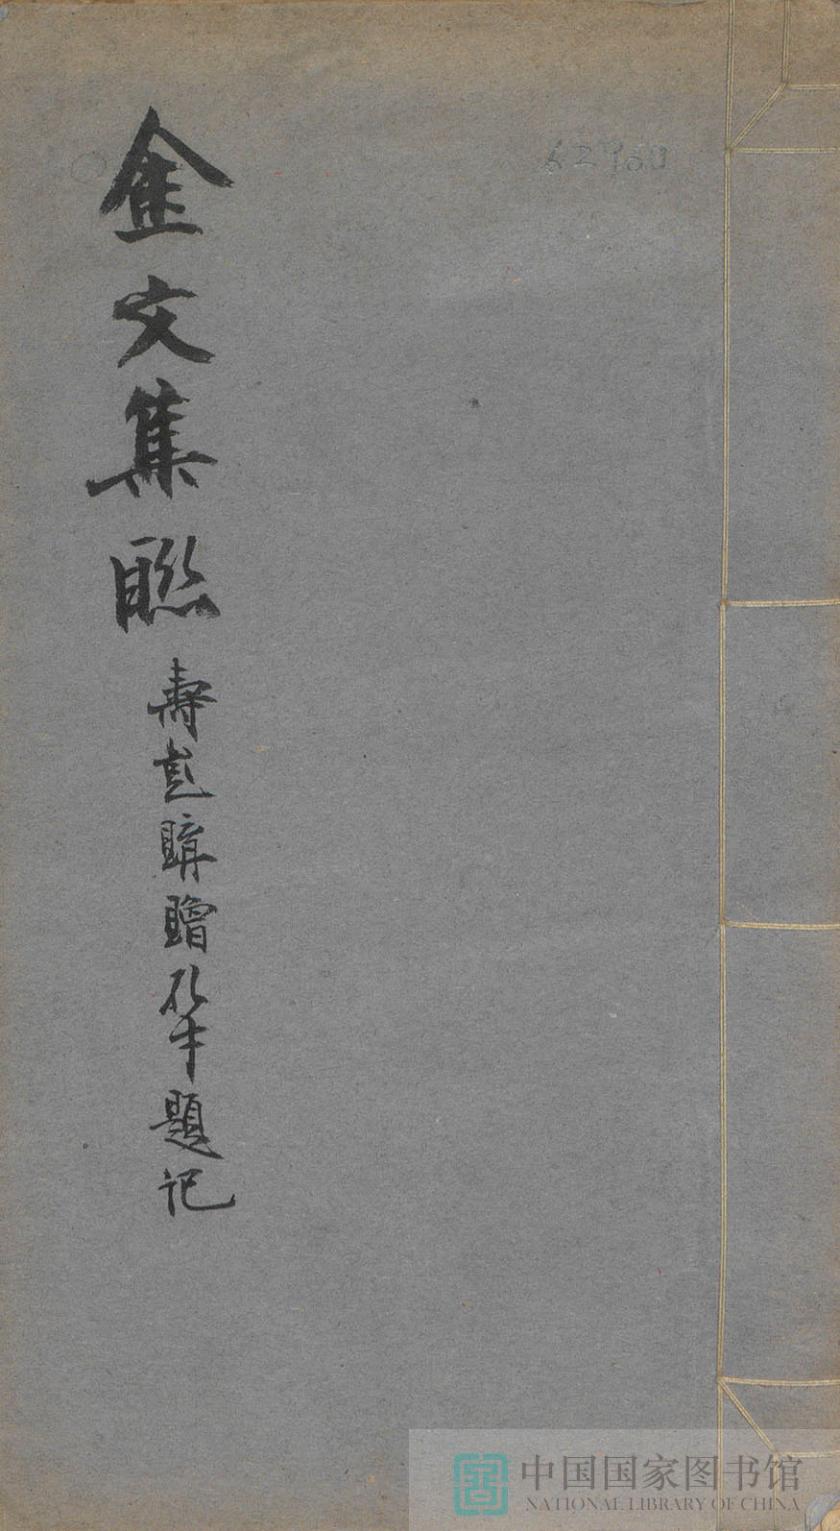 金文集联
寿彭購贈孔才題記
62950
中国国家图书馆
NATIONAL LIBRARY OF CHINA